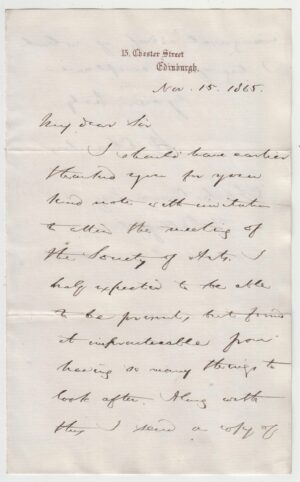 15. Chester Street
Edinburgh.
Nov. 15. 1865.
My dear Sir
I should have earlier
thanked you for your
kind note with invitation
to attend the meeting of
the Society of Arts. I
half expected to be able
to be present, but found
it impracticable from
having so many things to
look after. Along with
this I send a copy of